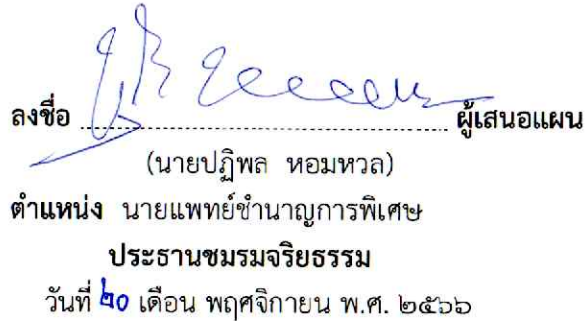 ลงชื่อ ........................................ ผู้เสนอแผน
(นายปฏิพล หอมหวล)
ตำแหน่ง นายแพทย์ชำนาญการพิเศษ
ประธานชมรมจริยธรรม
วันที่ ๒๐ เดือน พฤศจิกายน พ.ศ. ๒๕๖๖